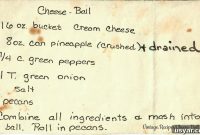 Cheese-Ball
16 oz. bucket cream cheese
8oz. can pineapple (crushed) & drained
1/4 c. green peppers
1 T. green onion
salt
pecans
Combine all ingredients & mash into
ball. Roll in pecans.